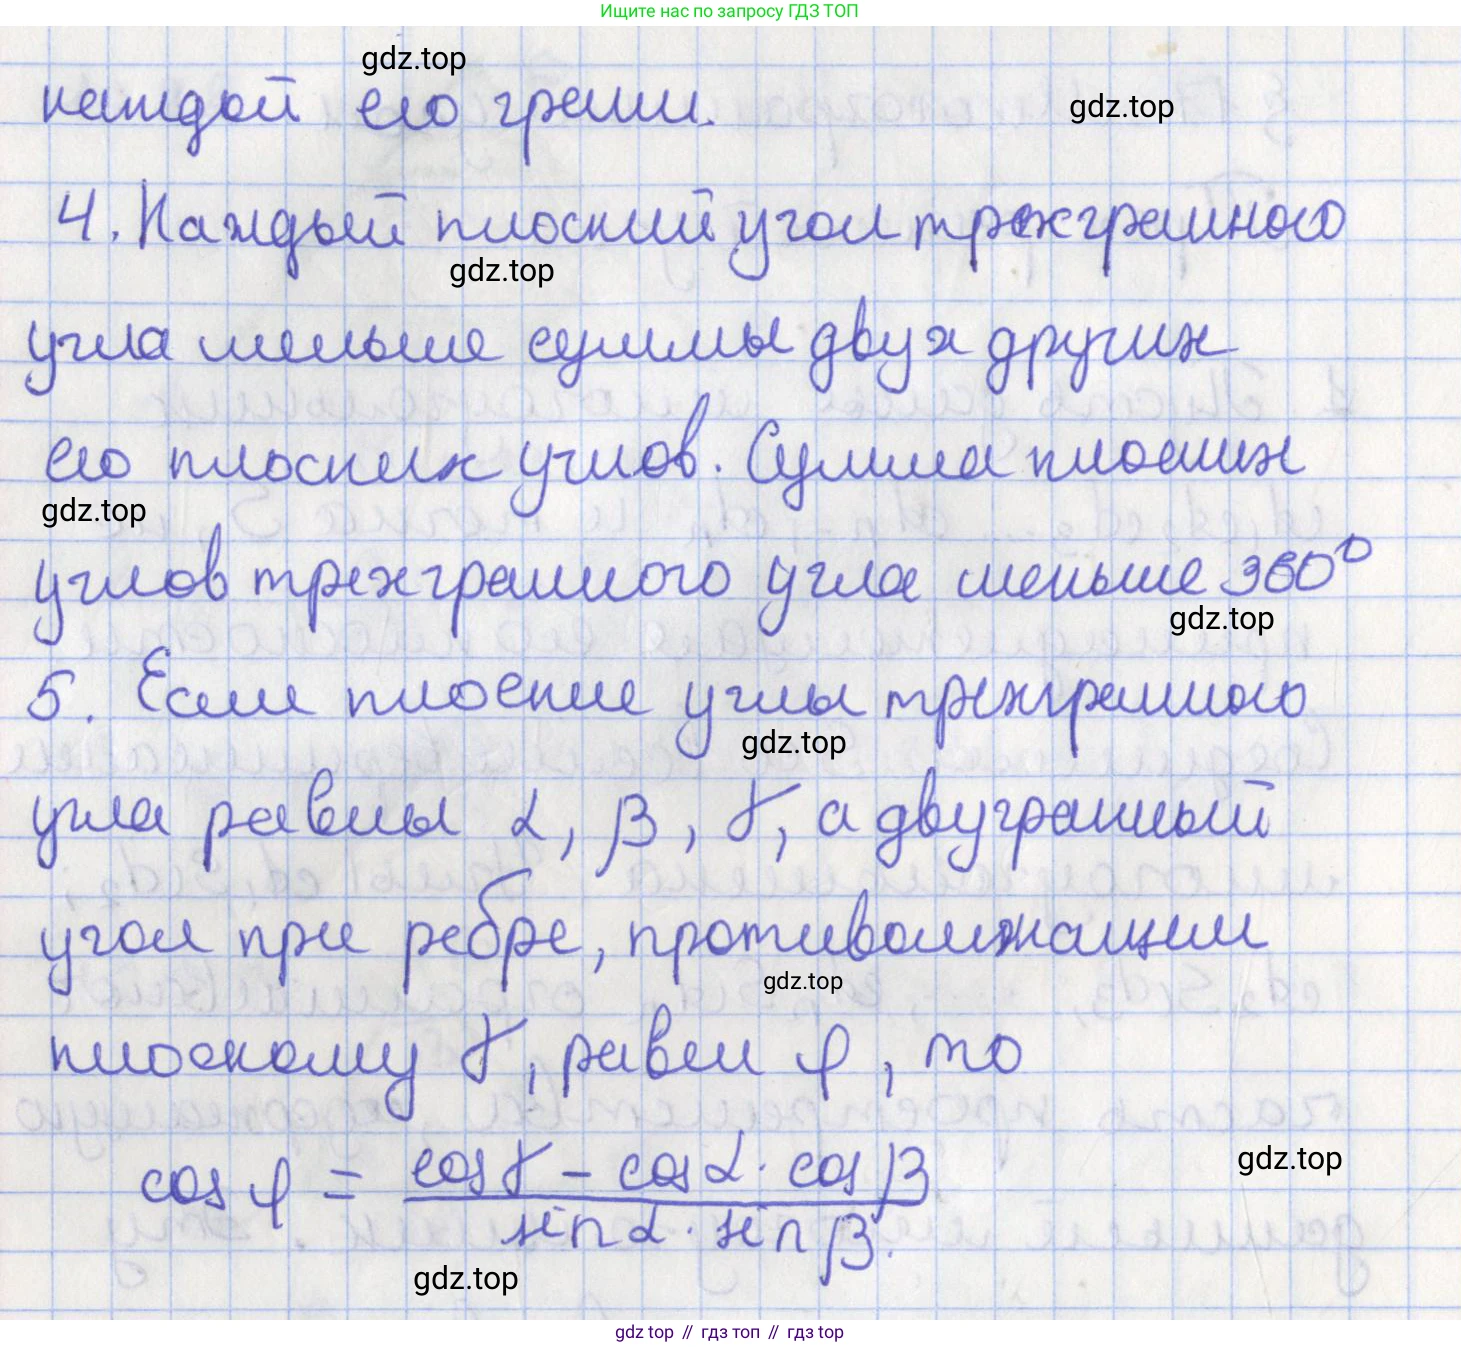 Ищите нас по запросу ГДЗ ТОП
gdz.top
каждой его грани.
gdz.top
4. Каждый плоский угол трехгранного
gdz.top
угла меньше суммы двух других
его плоских углов. Сумма плоских
gdz.top
углов трехгранного угла меньше 360°
gdz.top
5. Если плоские углы трехгранного
gdz.top
угла равны α, β, γ, а двугранный
угол при ребре, противолежащем
gdz.top
плоскому γ, равен φ, то
cos φ = (cos γ − cos α · cos β) / (sin α · sin β).
gdz.top
gdz.top
gdz top // гдз топ // гдз top